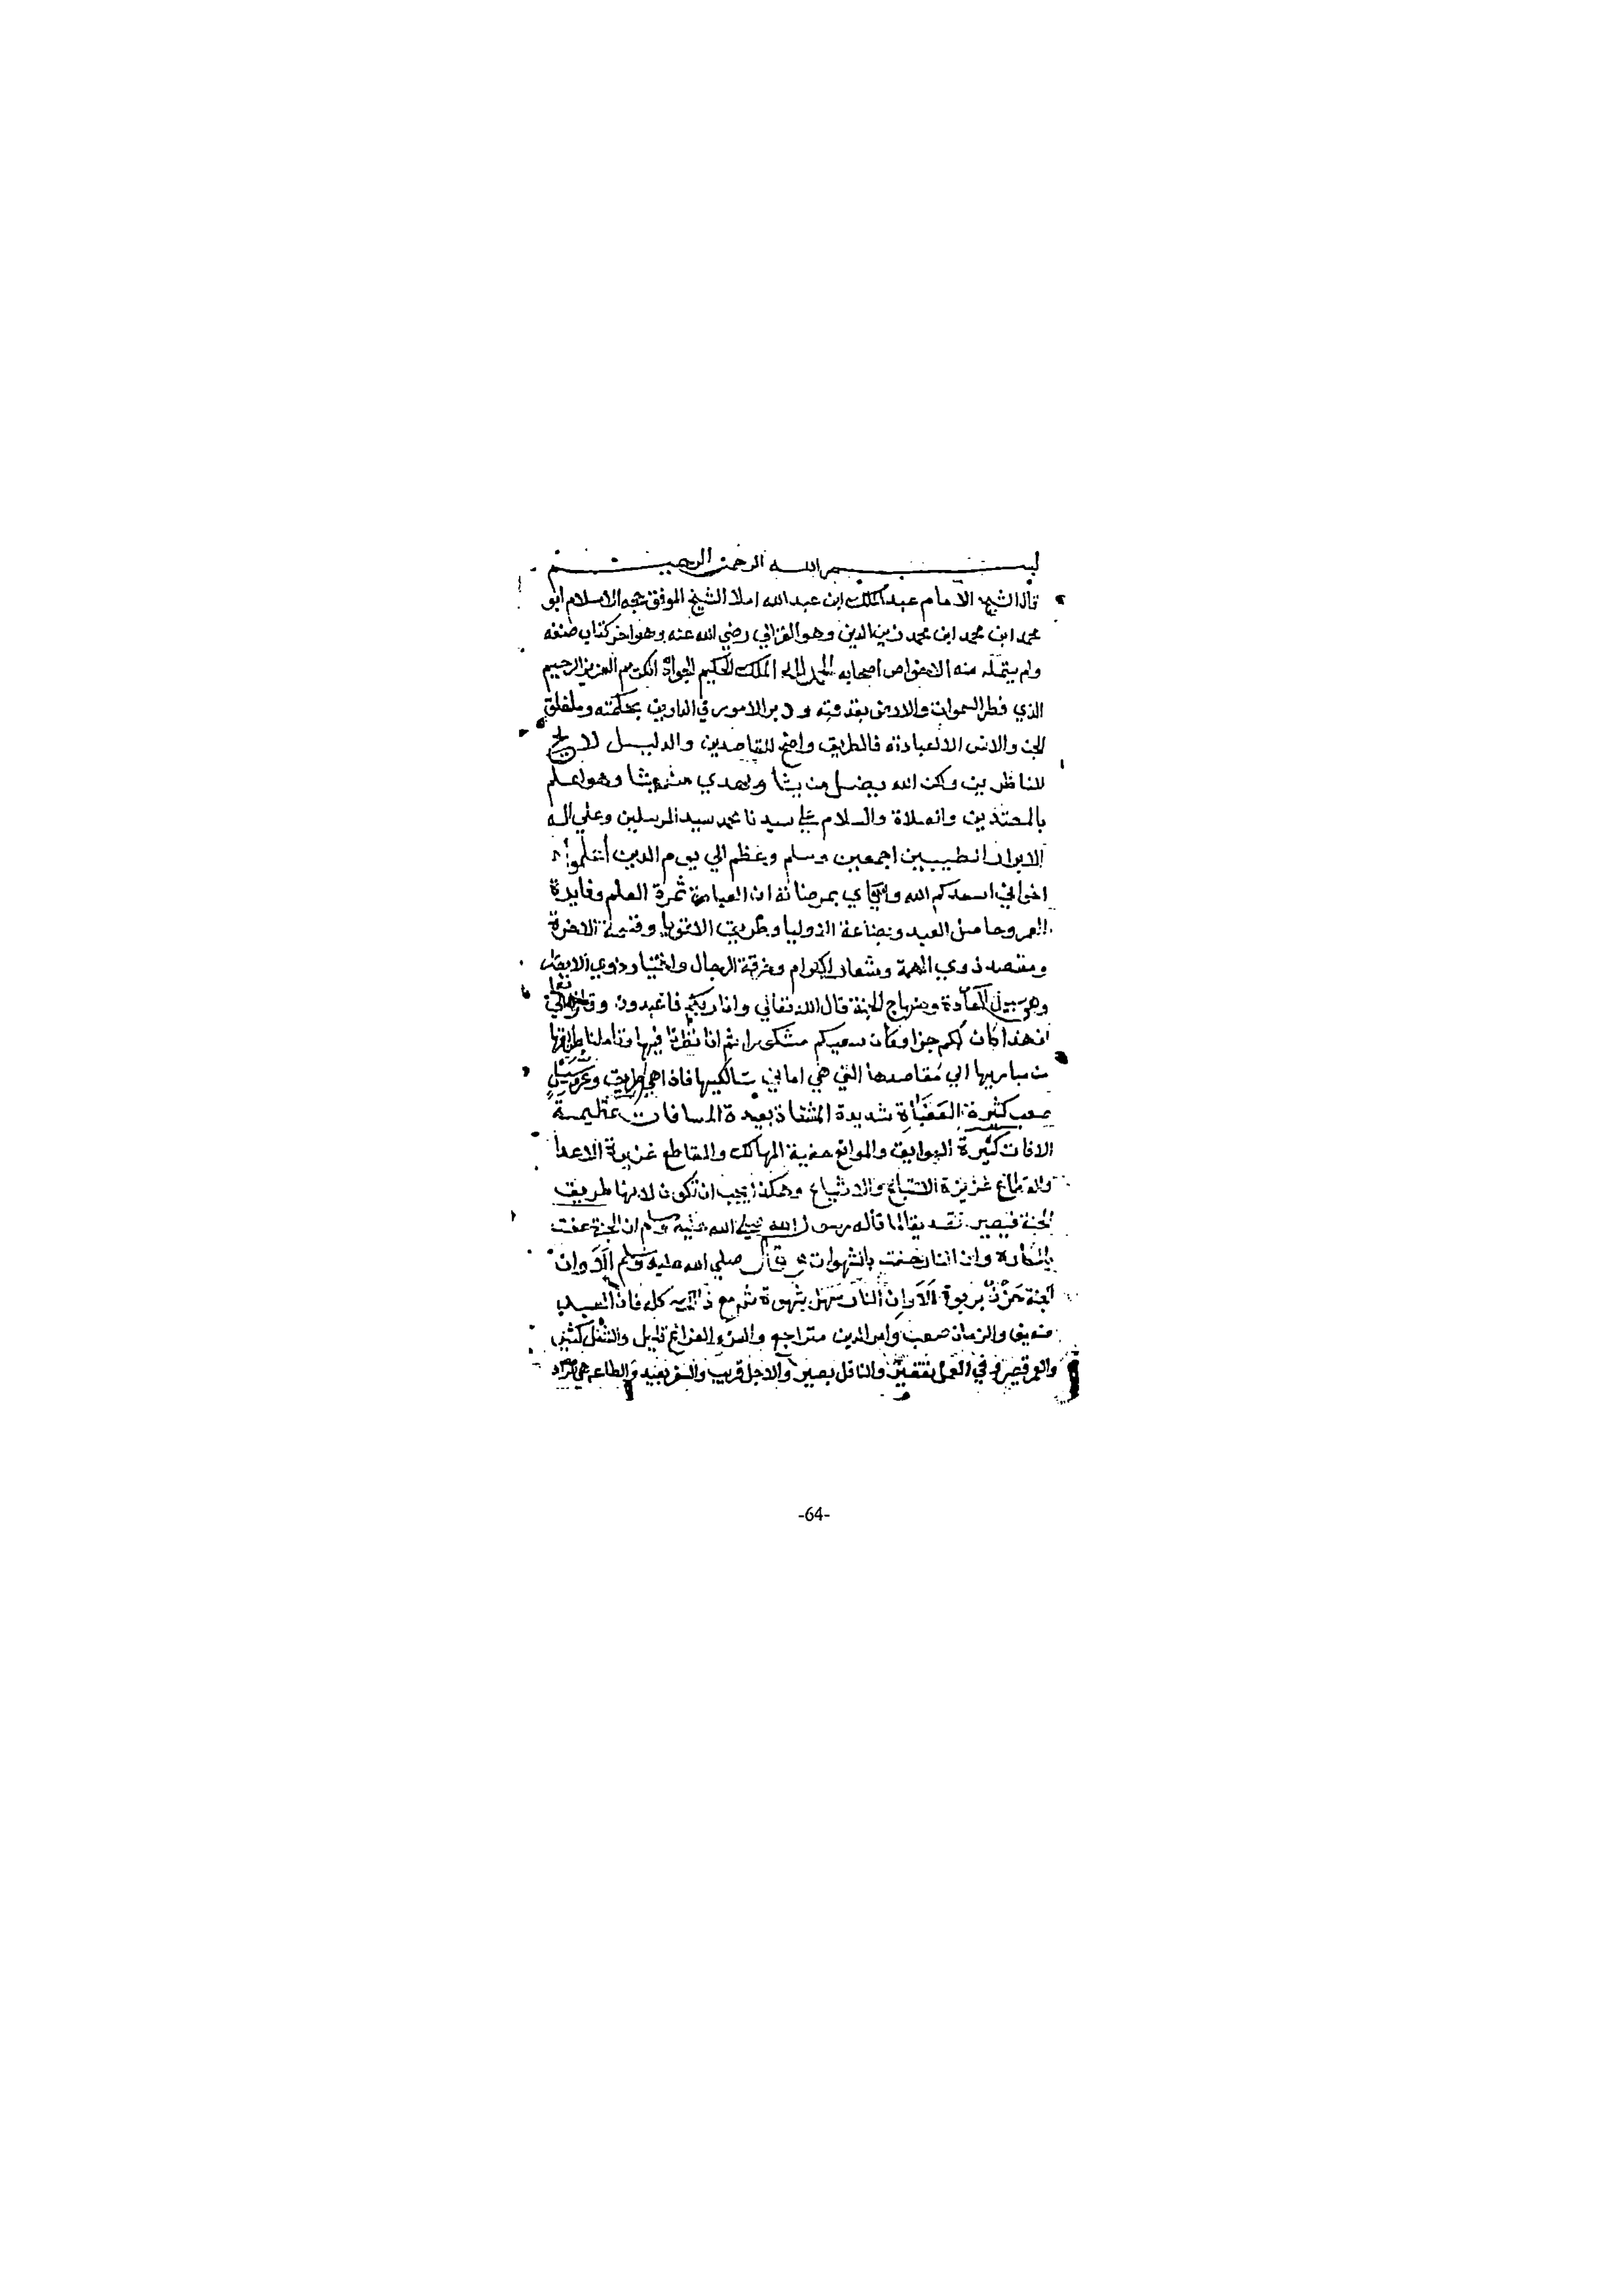 بسم الله الرحمن الرحيم
قال الشيخ الامام عبد الملك ابن عبد الله املا الشيخ الموفق حجه الاسلام ابو
محمد ابن محمد ابن محمد زين الدين وهو الغزالي رضي الله عنه وهو اخر كتاب صنفه
ولم يتمله منه الا خواص اصحابه الحمد لله الملك الحكيم الجواد الكريم العزيز الرحيم
الذي فطر السموات والارض بقدرته ودبر الامور في الدارين بحكمته وما خلق
الجن والانس الا لعبادته فالطريق واضح للقاصدين والدليل لايح
للناظرين ولكن الله يضل من يشا ويهدي من يشا وهو اعلم
بالمهتدين والصلاة والسلام علي سيدنا محمد سيد المرسلين وعلي اله
الابرار الطيبين اجمعين وسلم وعظم الي يوم الدين أعلموا
اخواني اسعدكم الله واياي بمرضاته ان العبادة ثمرة العلم وفايدة
العمر وحاصل العبد وبضاعة الاوليا وطريق الاتقيا وقسمة الاخرة
ومقصد ذوي الهمة وشعار الكرام وحرفة الرجال واختيار ذوي الابصار
وهي سبيل السعادة ومنهاج الجنة قال الله تعالي وانا ربكم فاعبدون وقال تعالي
ان هذا كان لكم جزا وكان سعيكم مشكورا ثم انا نظرنا فيها وتاملنا طريقها
من مباديها الي مقاصدها التي هي اماني سالكيها فاذا هي طريق وعر وسبيل
صعب كثيرة العقباة شديدة المشقات بعيدة المسافات عظيمة
الافات كثيرة العوايق والموانع خفية المهالك والمقاطع غزيرة الاعدا
والقطاع عزيزة الاتباع والاشياع وهكذا يجب ان تكون لانها طريق
الجنة فيصير تصديقا لما قاله رسول الله صلي الله عليه وسلم ان الجنة حفت
بالمكاره وان النار حفت بالشهوات وقال صلي الله عليه وسلم الا وان
الجنة حزن بربوة الا وان النار سهل بشهوة ثم مع ذالك كله فان العبد
ضعيف والزمان صعب وامر الدين متراجع والفراغ قليل والشغل كثير
والعمر قصير وفي العمل تقصير والناقد بصير والاجل قريب والسفر بعيد والطاعة هي الزاد
-64-